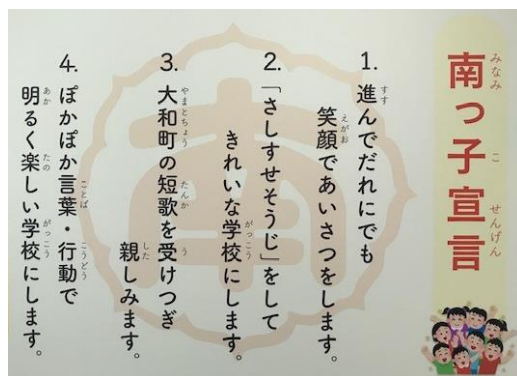 南っ子宣言
1. 進んでだれにでも
笑顔であいさつをします。
2. 「さしすせそうじ」をして
きれいな学校にします。
3. 大和町の短歌を受けつぎ
親しみます。
4. ぽかぽか言葉・行動で
明るく楽しい学校にします。